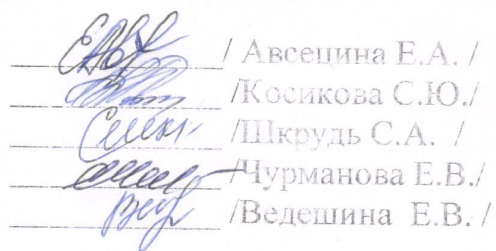 / Авсецина Е.А. /
/Косикова С.Ю./
/Шкрудь С.А. /
/Чурманова Е.В./
/Ведешина Е.В. /